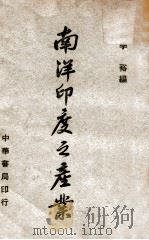 李裕編
南洋印度之產業
中華書局印行